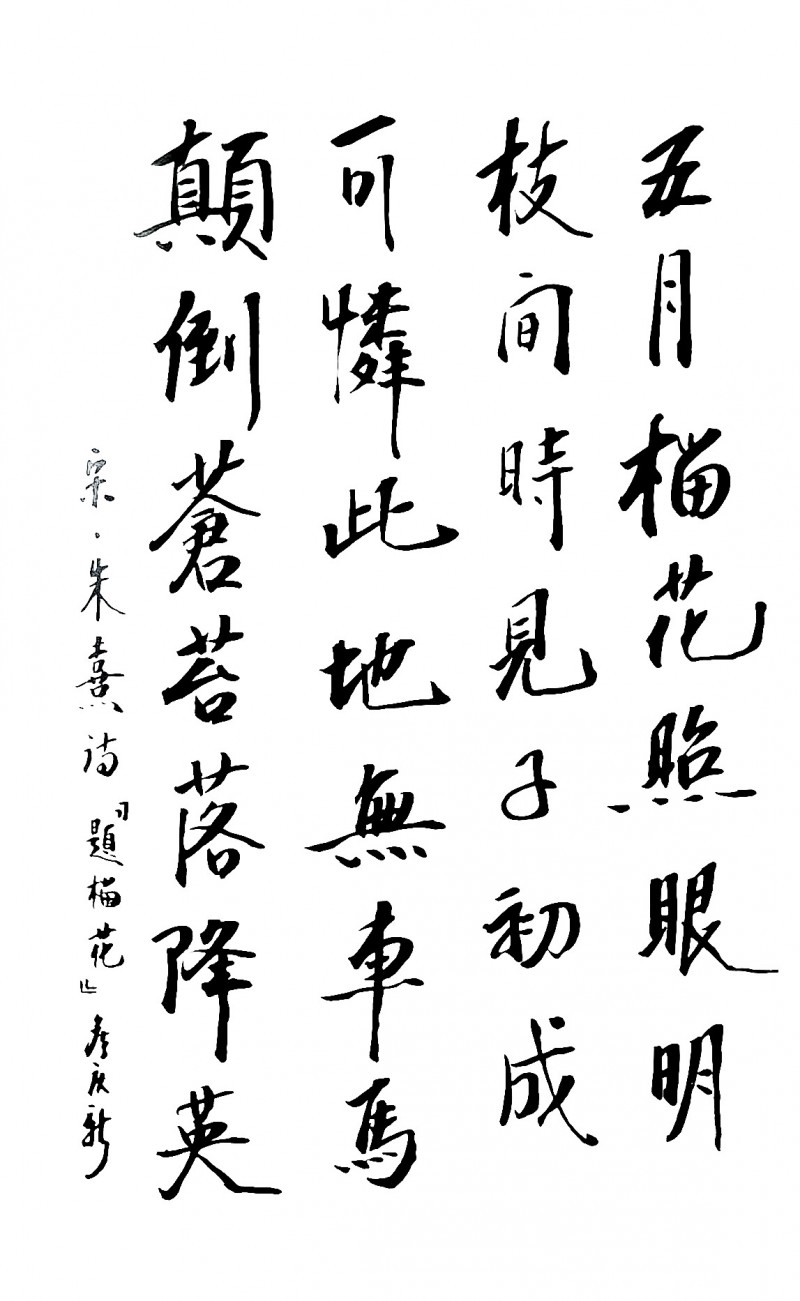 五月榴花照眼明
枝间時見子初成
可憐此地無車馬
顛倒蒼苔落降英
宋·朱熹诗『題榴花』